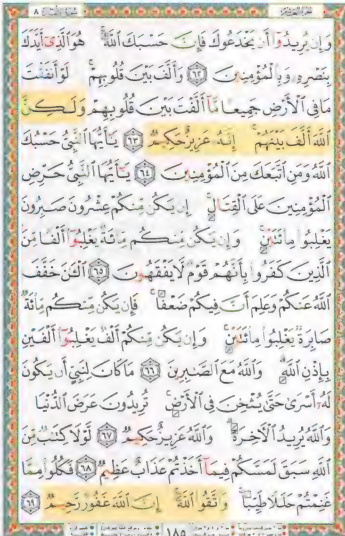 وَإِن يُرِيدُوٓا۟ أَن يَخْدَعُوكَ فَإِنَّ حَسْبَكَ ٱللَّهُ ۚ هُوَ ٱلَّذِىٓ أَيَّدَكَ
بِنَصْرِهِۦ وَبِٱلْمُؤْمِنِينَ ٦٢ وَأَلَّفَ بَيْنَ قُلُوبِهِمْ ۚ لَوْ أَنفَقْتَ
مَا فِى ٱلْأَرْضِ جَمِيعًا مَّآ أَلَّفْتَ بَيْنَ قُلُوبِهِمْ وَلَـٰكِنَّ
ٱللَّهَ أَلَّفَ بَيْنَهُمْ ۚ إِنَّهُۥ عَزِيزٌ حَكِيمٌ ٦٣ يَـٰٓأَيُّهَا ٱلنَّبِىُّ حَسْبُكَ
ٱللَّهُ وَمَنِ ٱتَّبَعَكَ مِنَ ٱلْمُؤْمِنِينَ ٦٤ يَـٰٓأَيُّهَا ٱلنَّبِىُّ حَرِّضِ
ٱلْمُؤْمِنِينَ عَلَى ٱلْقِتَالِ ۚ إِن يَكُن مِّنكُمْ عِشْرُونَ صَـٰبِرُونَ
يَغْلِبُوا۟ مِا۟ئَتَيْنِ ۚ وَإِن يَكُن مِّنكُم مِّا۟ئَةٌ يَغْلِبُوٓا۟ أَلْفًا مِّنَ
ٱلَّذِينَ كَفَرُوا۟ بِأَنَّهُمْ قَوْمٌ لَّا يَفْقَهُونَ ٦٥ ٱلْـَٔـٰنَ خَفَّفَ
ٱللَّهُ عَنكُمْ وَعَلِمَ أَنَّ فِيكُمْ ضَعْفًا ۚ فَإِن يَكُن مِّنكُم مِّا۟ئَةٌ
صَابِرَةٌ يَغْلِبُوا۟ مِا۟ئَتَيْنِ ۚ وَإِن يَكُن مِّنكُمْ أَلْفٌ يَغْلِبُوٓا۟ أَلْفَيْنِ
بِإِذْنِ ٱللَّهِ ۗ وَٱللَّهُ مَعَ ٱلصَّـٰبِرِينَ ٦٦ مَا كَانَ لِنَبِىٍّ أَن يَكُونَ
لَهُۥٓ أَسْرَىٰ حَتَّىٰ يُثْخِنَ فِى ٱلْأَرْضِ ۚ تُرِيدُونَ عَرَضَ ٱلدُّنْيَا
وَٱللَّهُ يُرِيدُ ٱلْـَٔاخِرَةَ ۗ وَٱللَّهُ عَزِيزٌ حَكِيمٌ ٦٧ لَّوْلَا كِتَـٰبٌ مِّنَ
ٱللَّهِ سَبَقَ لَمَسَّكُمْ فِيمَآ أَخَذْتُمْ عَذَابٌ عَظِيمٌ ٦٨ فَكُلُوا۟ مِمَّا
غَنِمْتُمْ حَلَـٰلًا طَيِّبًا ۚ وَٱتَّقُوا۟ ٱللَّهَ ۚ إِنَّ ٱللَّهَ غَفُورٌ رَّحِيمٌ ٦٩
١٨٥